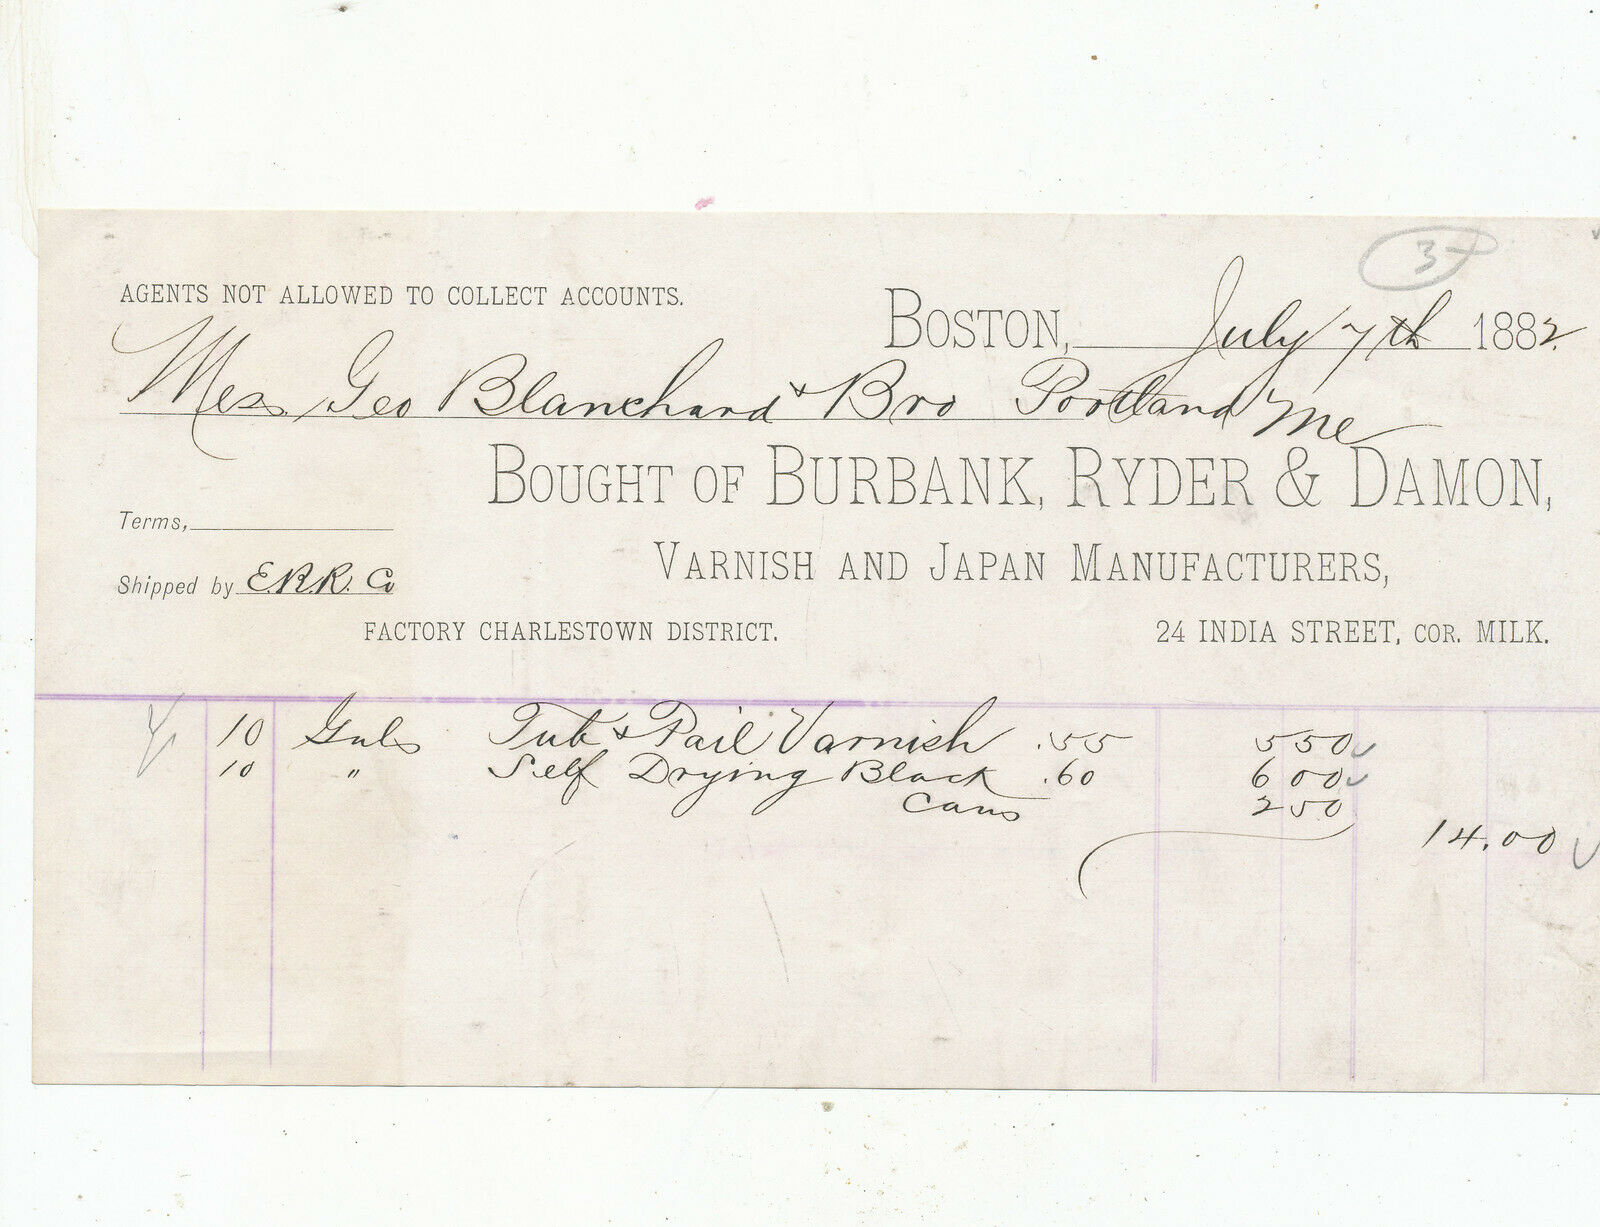 37
AGENTS NOT ALLOWED TO COLLECT ACCOUNTS.
BOSTON, July 7th 1882.
Mess Geo Blanchard & Bro Portland Me
BOUGHT OF BURBANK, RYDER & DAMON,
Terms,
VARNISH AND JAPAN MANUFACTURERS,
Shipped by E.R.R. Co
FACTORY CHARLESTOWN DISTRICT. 24 INDIA STREET, COR. MILK.
10 Gals Tub & Pail Varnish .55 5 50
10 " Self Drying Black .60 6 00
Cans 2 50
14.00